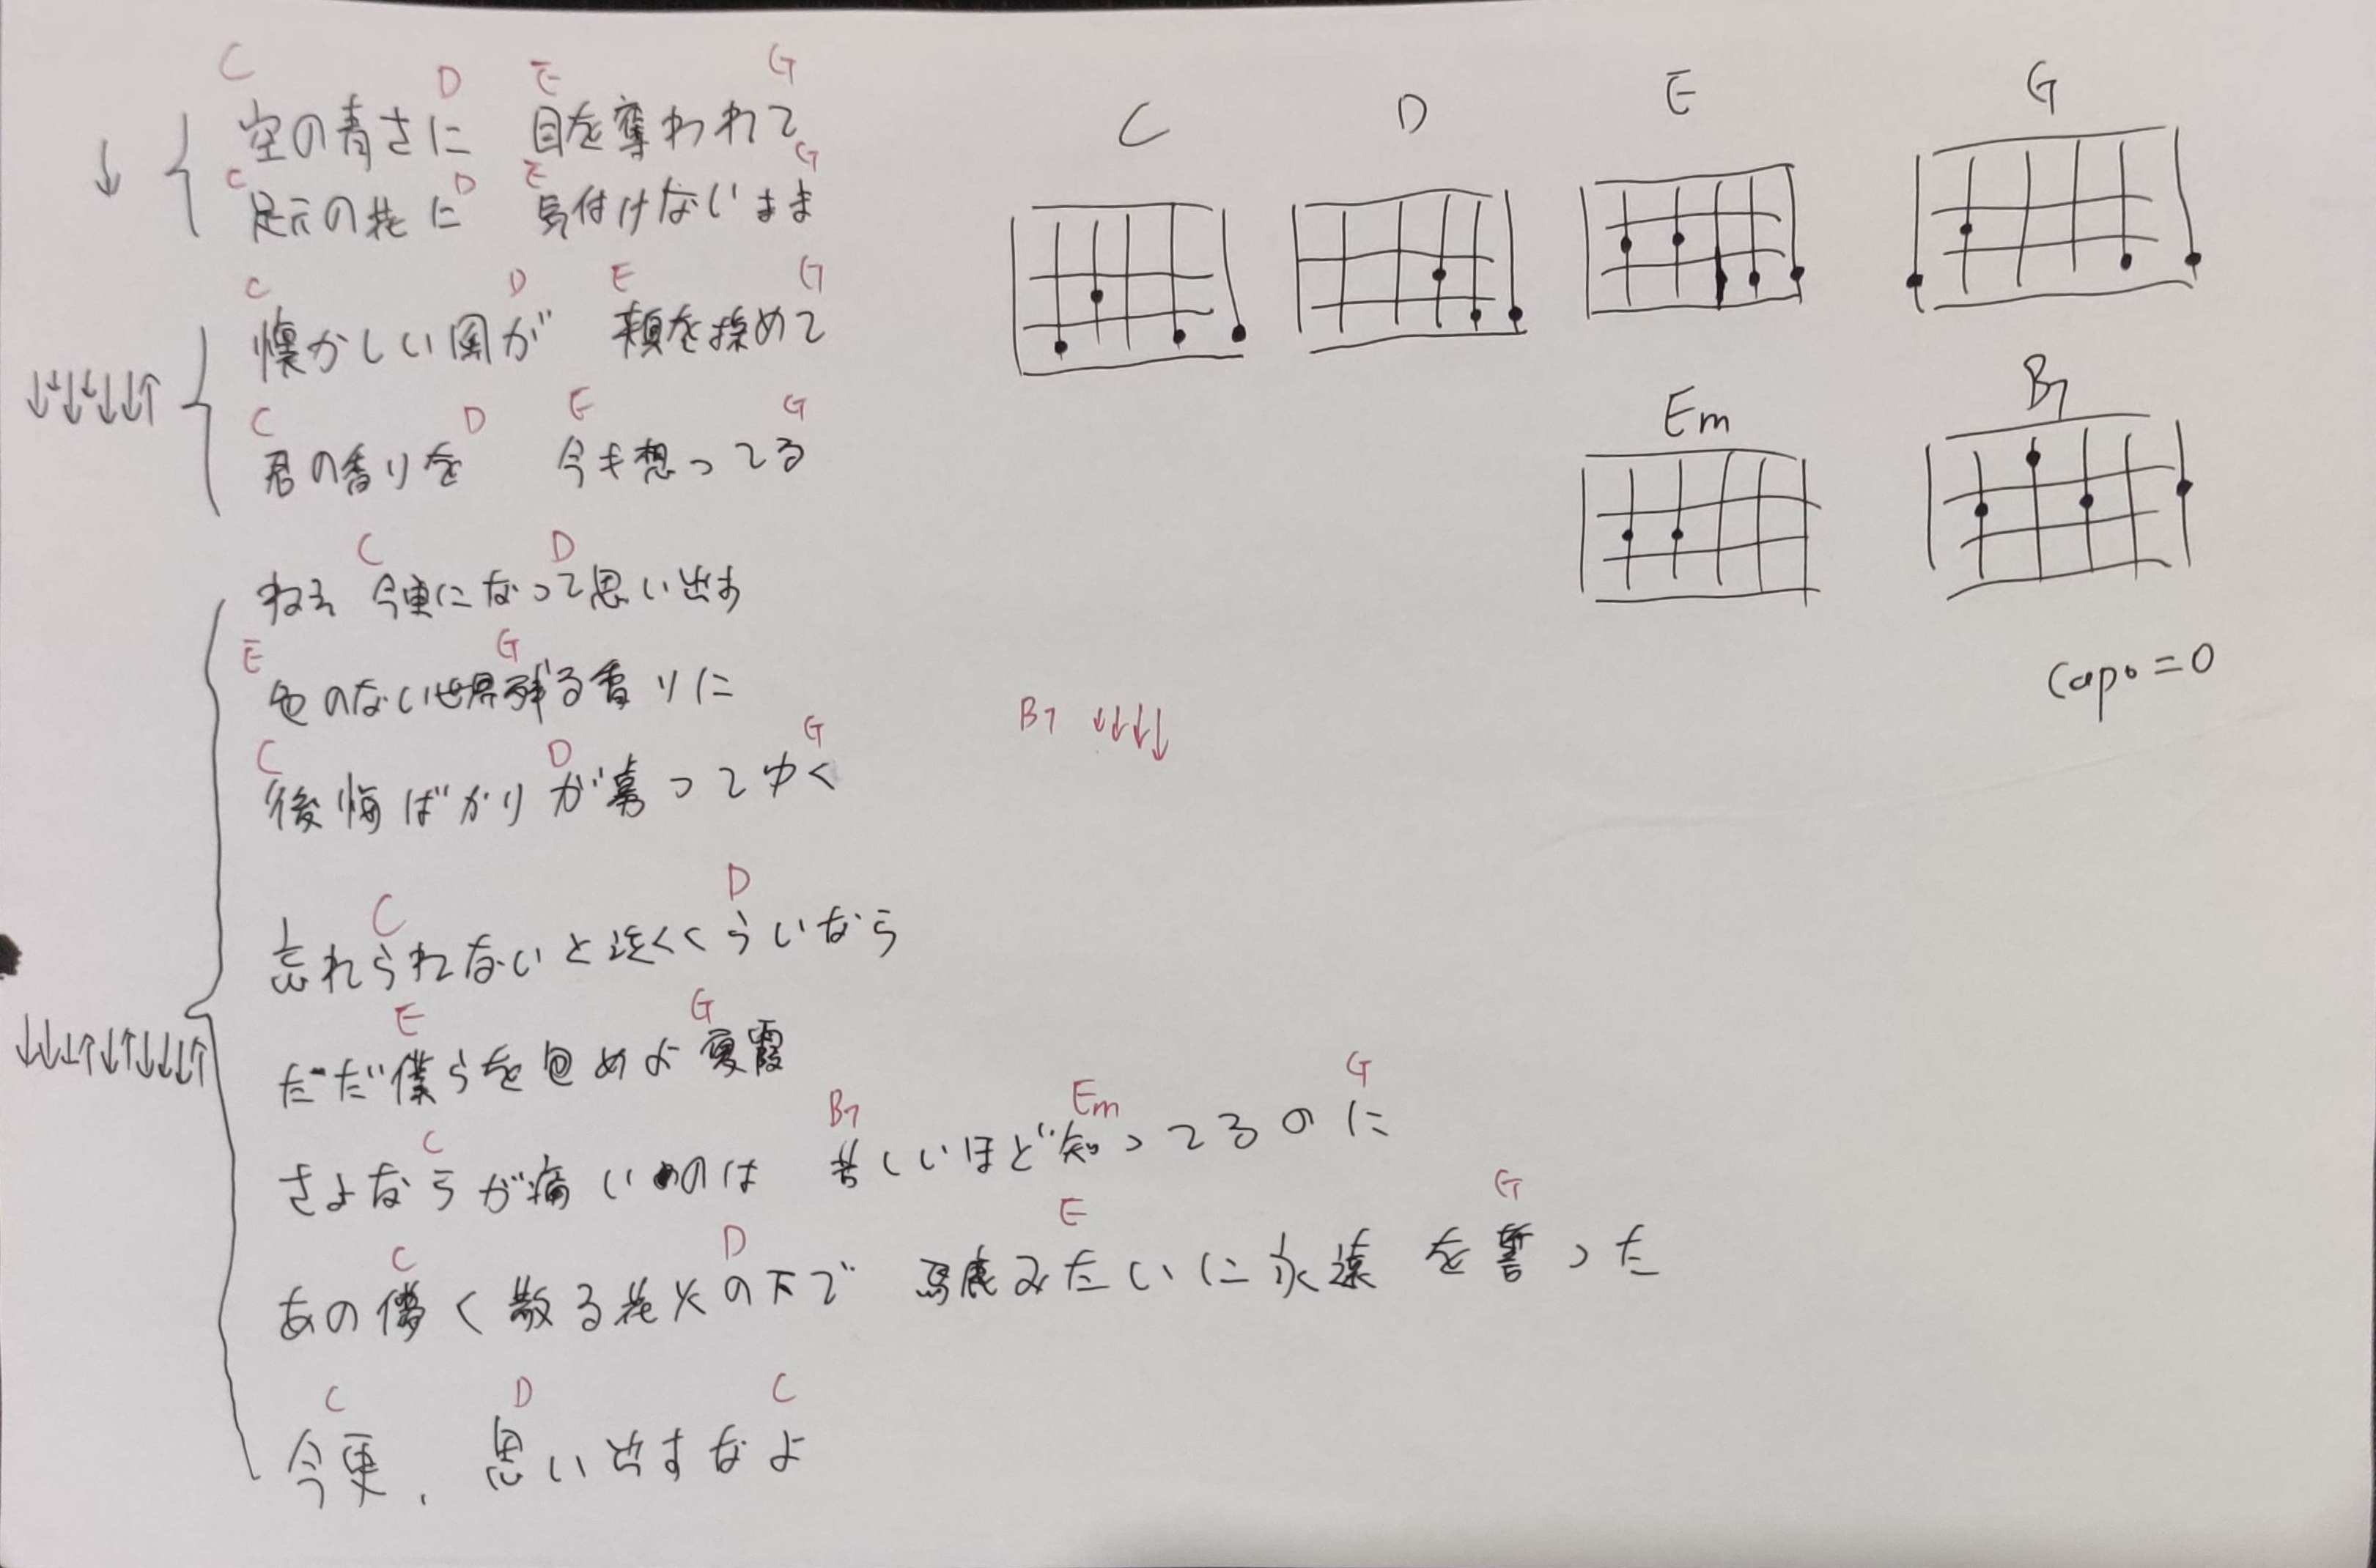 C D E G
空の青さに 目を奪われて
C D E G
足元の花に 気付けないまま
↓
C D E G
懐かしい風が 頬を掠めて
C D E G
君の香りを 今も想ってる
↓↓↓↓↓↑
C D
ねえ 今更になって思い出す
E G
色のない世界残る香りに
C D G
後悔ばかりが募ってゆく
B7 ↓↓↓↓
C D
忘れられないと泣くくらいなら
E G
ただ僕らを包めよ夏霞
↓↓↓↑↓↑↓↓↓↑
C B7 Em G
さよならが痛いのは 苦しいほど知ってるのに
C D E G
あの儚く散る花火の下で 馬鹿みたいに永遠を誓った
C D C
今更、思い出すなよ
C D E G
Em B7
Capo=0